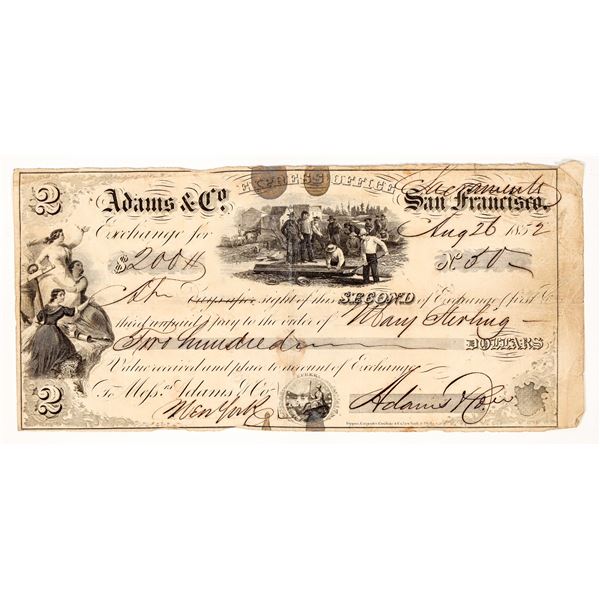 2
EXPRESS OFFICE
Sacramento
Adams & Co. San Francisco.
Aug 26 1852
Exchange for
$200 No. 50
At Days after sight of this SECOND of Exchange (first &
third unpaid) pay to the order of Mary Sterling
Two hundred DOLLARS
Value received and place to account of Exchange
EUREKA
To Messrs Adams & Co.
New York Adams & Co.
2